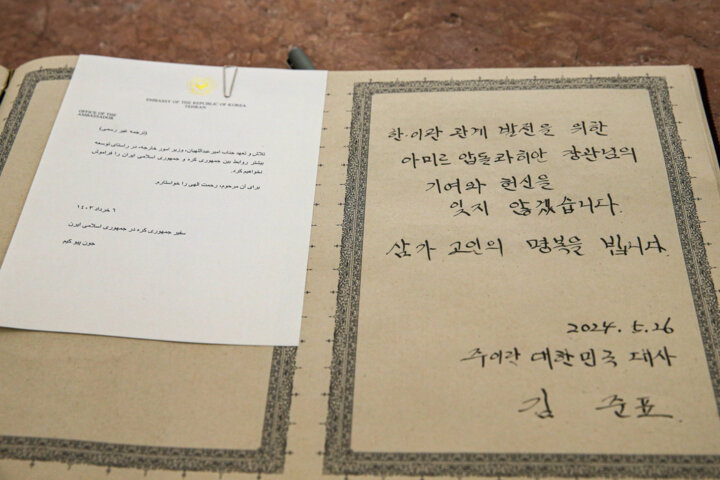 EMBASSY OF THE REPUBLIC OF KOREA
TEHRAN
OFFICE OF THE
AMBASSADOR
(ترجمه غیر رسمی)
تلاش و تعهد جناب امیرعبداللهیان، وزیر امور خارجه، در راستای توسعه
بیشتر روابط بین جمهوری کره و جمهوری اسلامی ایران را فراموش
نخواهیم کرد.
برای آن مرحوم، رحمت الهی را خواستارم.
۶ خرداد ۱۴۰۳
سفیر جمهوری کره در جمهوری اسلامی ایرن
جون پیو کیم
한·이란 관계 발전을 위한
아미르 압돌라히안 장관님의
기여와 헌신을
잊지 않겠습니다.
삼가 고인의 명복을 빕니다.
2024. 5. 26
주이란 대한민국 대사
김 준표